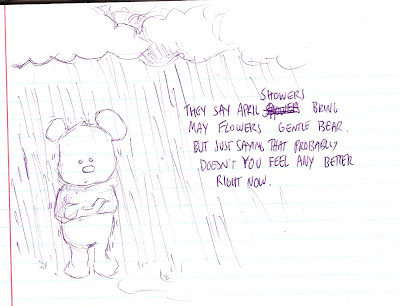 SHOWERS
THEY SAY APRIL BRING
MAY FLOWERS GENTLE BEAR.
BUT JUST SAYING THAT PROBABLY
DOESN'T YOU FEEL ANY BETTER
RIGHT NOW.